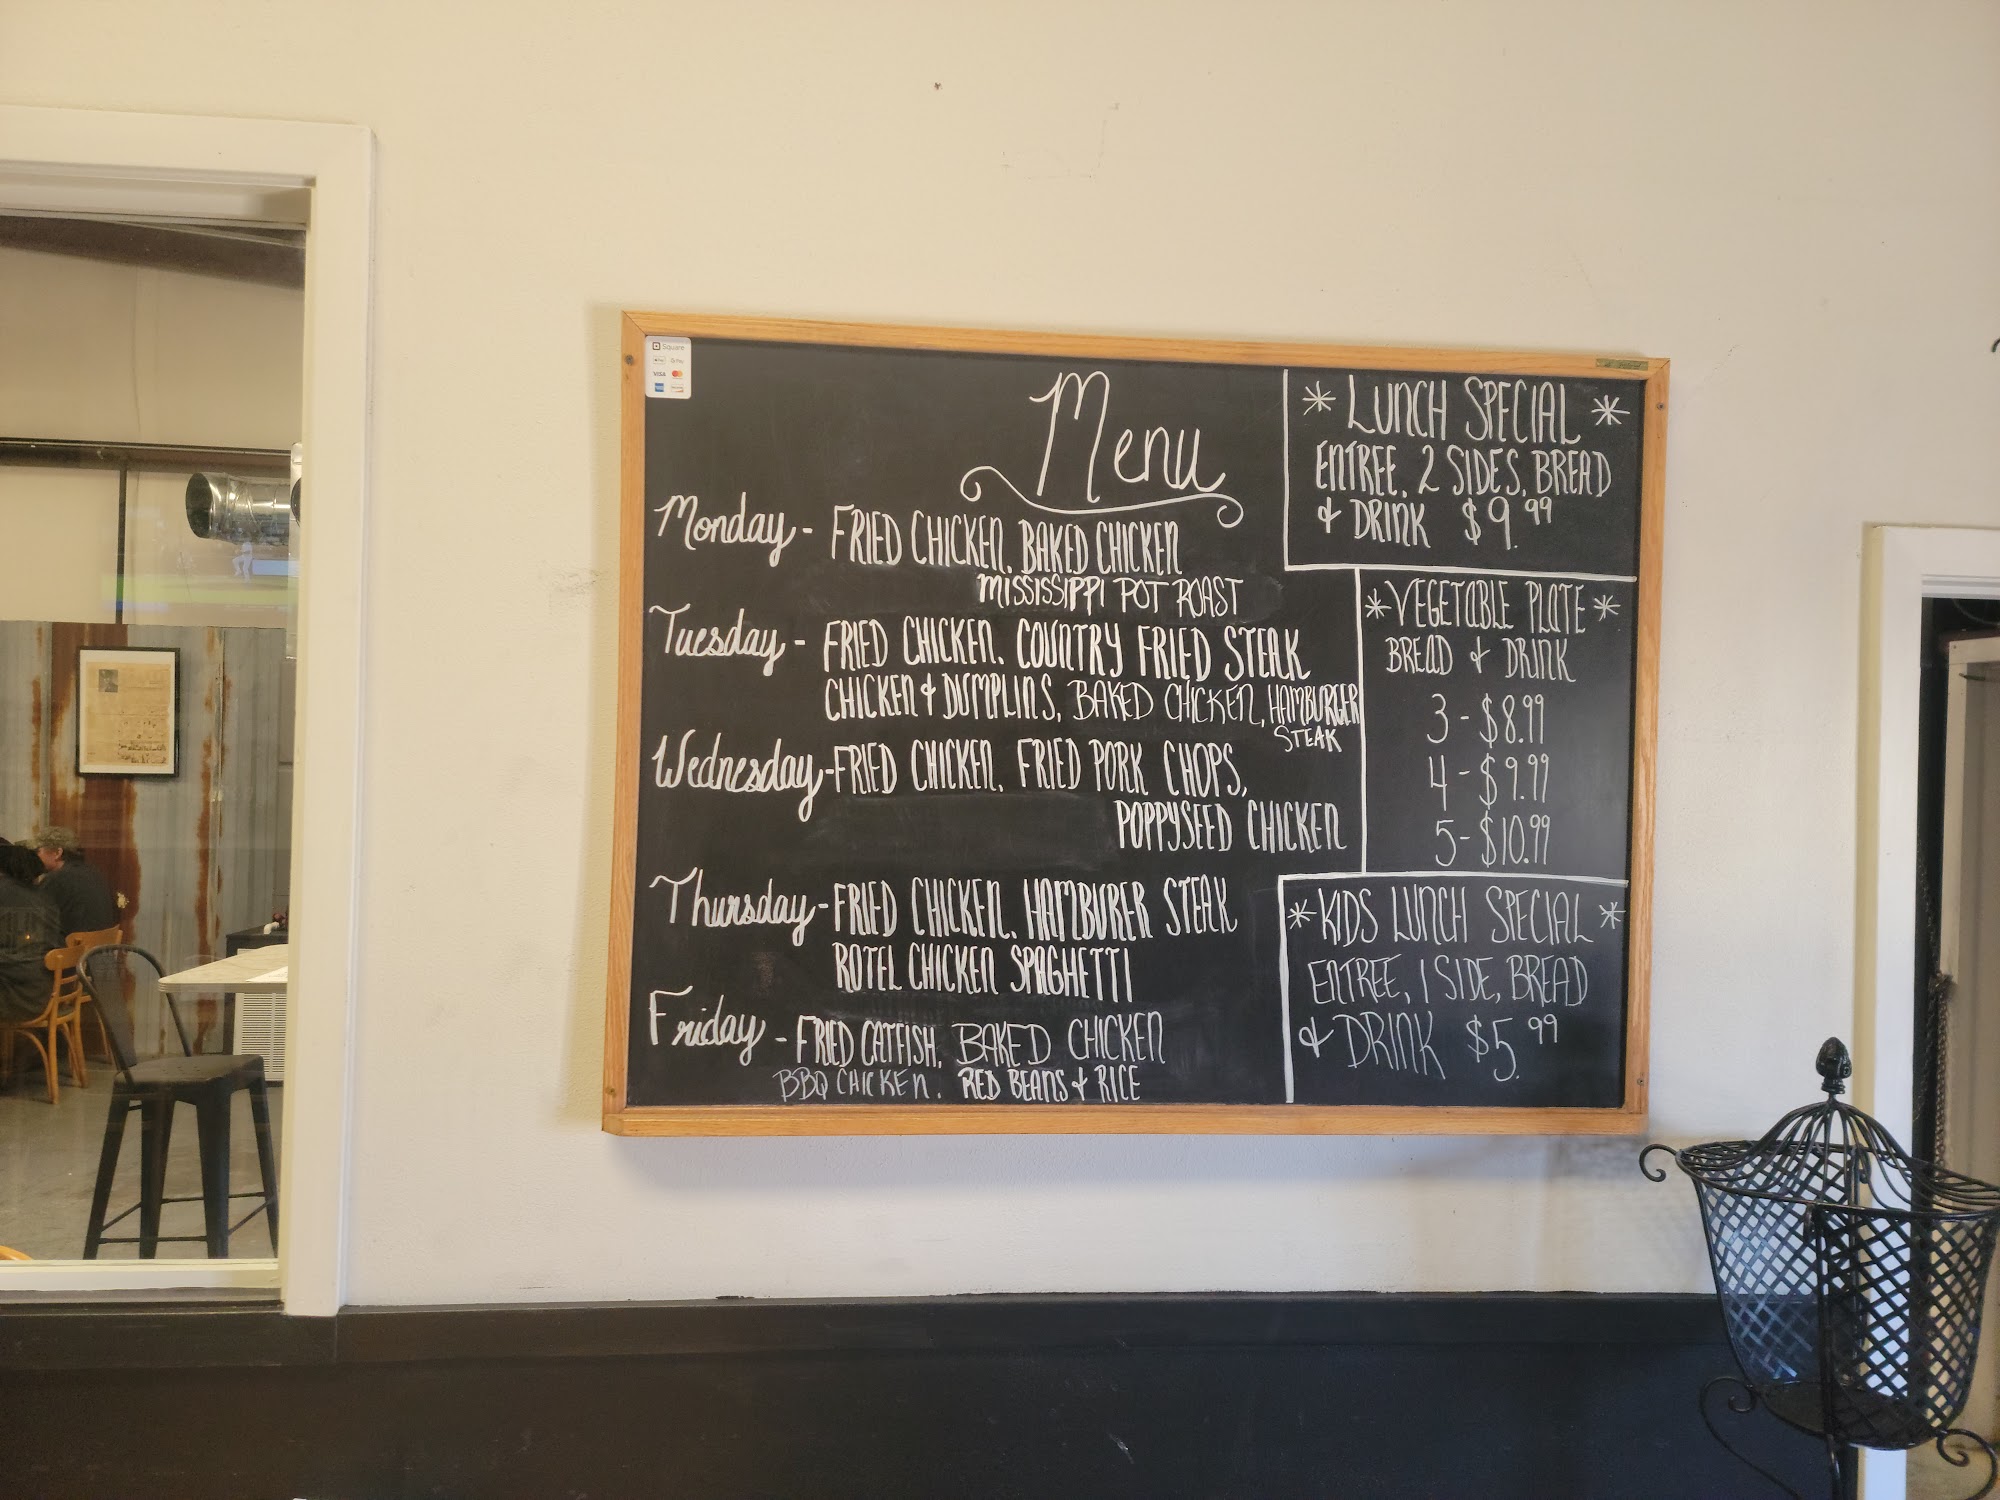 Square
VISA
Menu
Monday - FRIED CHICKEN, BAKED CHICKEN
MISSISSIPPI POT ROAST
Tuesday - FRIED CHICKEN, COUNTRY FRIED STEAK
CHICKEN & DUMPLINS, BAKED CHICKEN, HAMBURGER
STEAK
Wednesday - FRIED CHICKEN, FRIED PORK CHOPS,
POPPYSEED CHICKEN
Thursday - FRIED CHICKEN, HAMBURER STEAK
ROTEL CHICKEN SPAGHETTI
Friday - FRIED CATFISH, BAKED CHICKEN
BBQ CHICKEN, RED BEANS & RICE
* LUNCH SPECIAL *
ENTREE, 2 SIDES, BREAD
& DRINK $9.99
* VEGETABLE PLATE *
BREAD & DRINK
3 - $8.99
4 - $9.99
5 - $10.99
* KIDS LUNCH SPECIAL *
ENTREE, 1 SIDE, BREAD
& DRINK $5.99